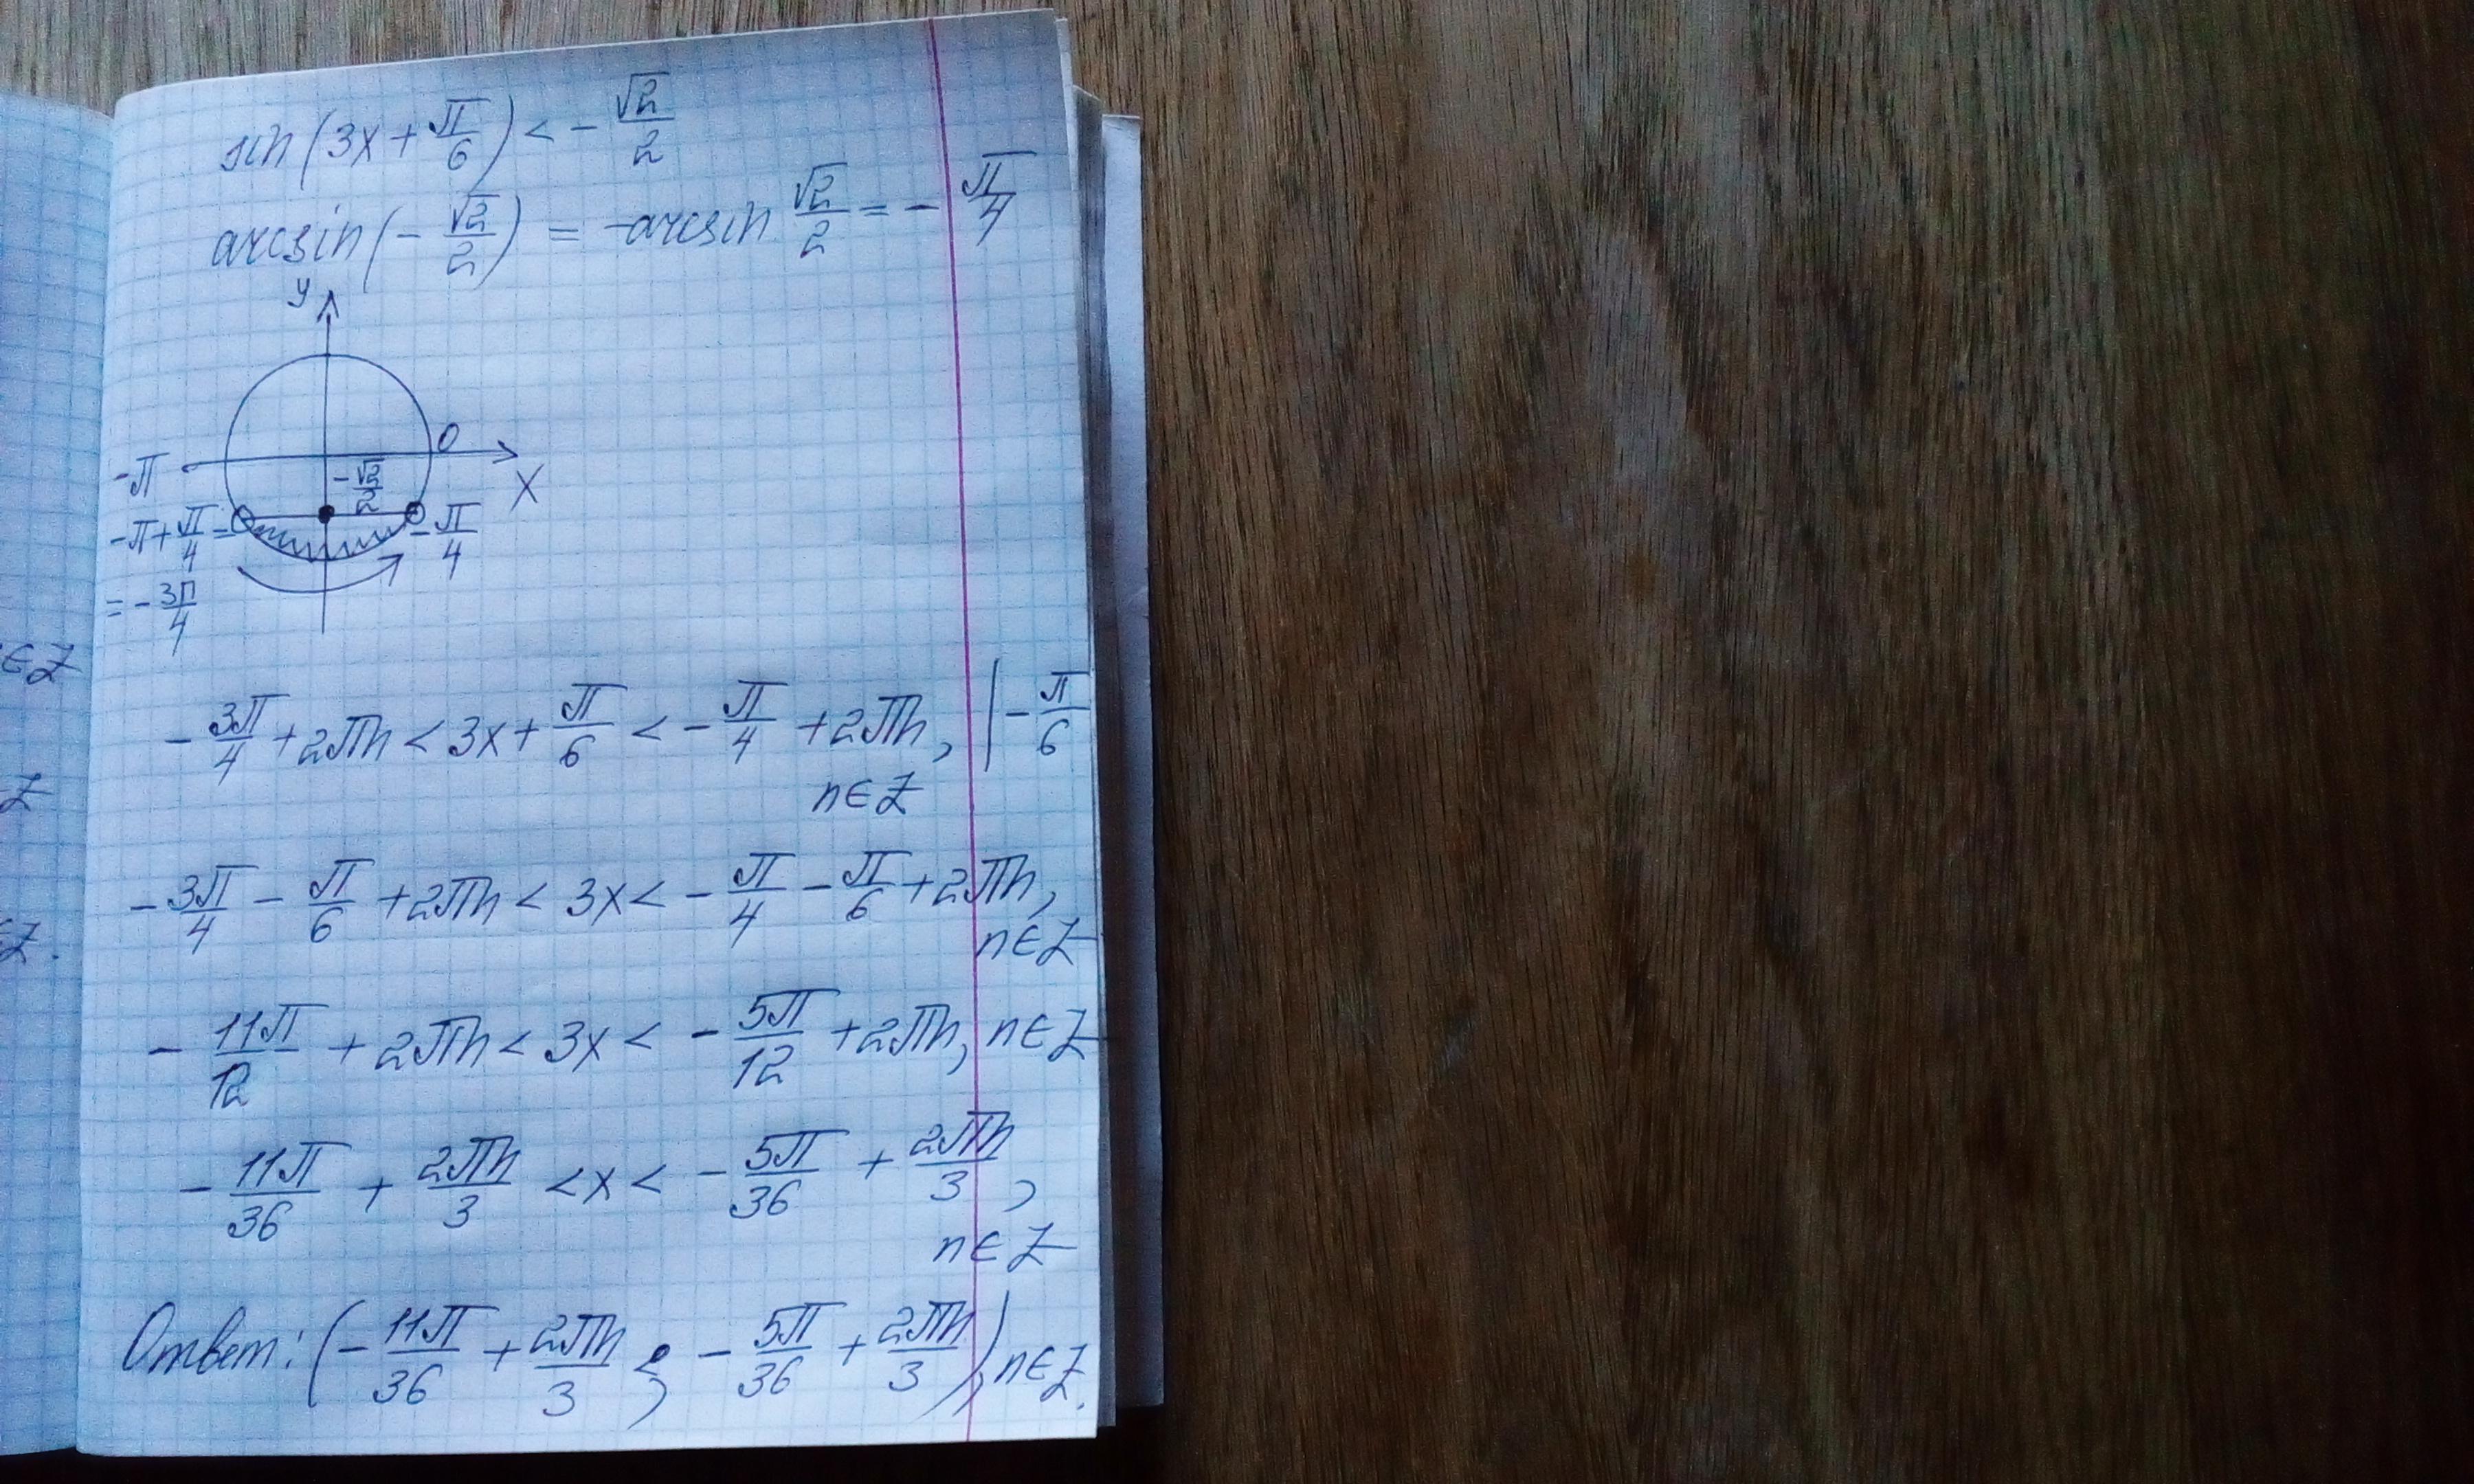 sin(3x + π/6) < - √2/2
arcsin(- √2/2) = -arcsin √2/2 = - π/4
y
0
-π
x
- √2/2
-π + π/4 =
- π/4
= - 3π/4
- 3π/4 + 2πn < 3x + π/6 < - π/4 + 2πn, | - π/6
n∈Z
∈Z
- 3π/4 - π/6 + 2πn < 3x < - π/4 - π/6 + 2πn,
n∈Z
Z
∈Z.
- 11π/12 + 2πn < 3x < - 5π/12 + 2πn, n∈Z
- 11π/36 + 2πn/3 < x < - 5π/36 + 2πn/3,
n∈Z
Ответ: (- 11π/36 + 2πn/3 ; - 5π/36 + 2πn/3), n∈Z.